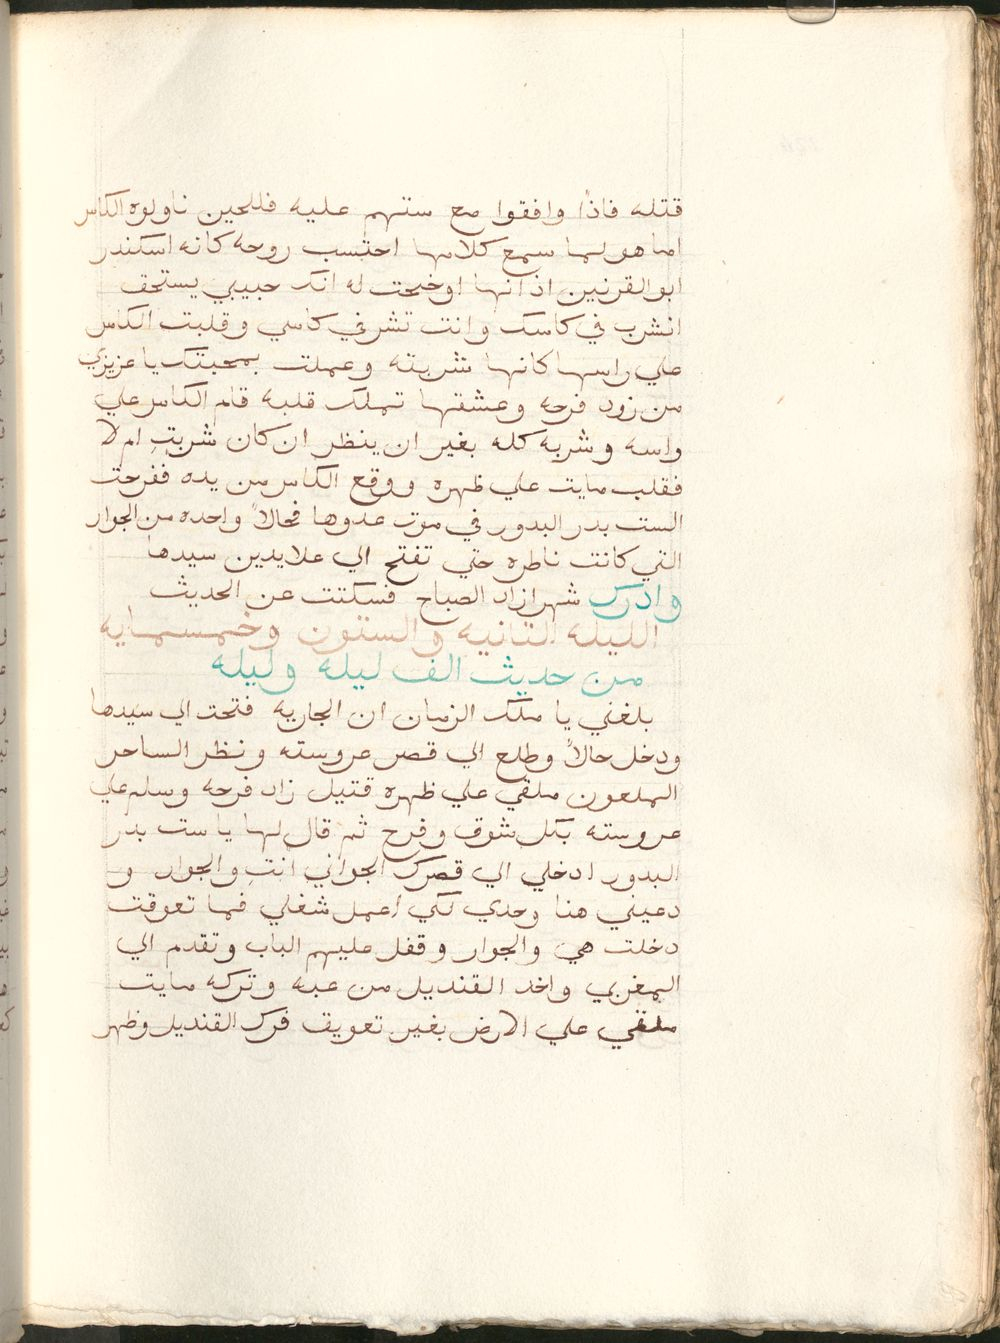 قتله فاذاً وافقوا مع ستهم عليه فللحين ناولوه الكاس
اما هو لما سمع كلامها احتسب روحه كانه اسكندر
ابو القرنين اذ انها اوضحت له انك حبيبي يستحق
انشرب في كاسك وانت تشرب في كاسي وقلبت الكاس
علي راسها كانها شربته وعملت بمحبتك يا عزيزي
من زود فرحه وعشقها تملك قلبه قام الكاس علي
راسه وشربه كله بغير ان ينظر ان كان شربتِ ام لا
فقلب مايت علي ظهره ووقع الكاس من يده ففرحت
الست بدر البدور في موت عدوها فحالاً واحده من الجوار
التي كانت ناطره حتي تفتح الي علايدين سيدها
وادرك شهرازاد الصباح فسكتت عن الحديث
الليله التانيه والستون وخمسمايه
من حديث الف ليله وليله
بلغني يا ملك الزمان ان الجاريه فتحت الي سيدها
ودخل حالاً وطلع الي قصر عروسته ونظر الساحر
الملعون ملقي علي ظهره قتيل زاد فرحه وسلم علي
عروسته بكل شوق وفرح ثم قال لها يا ست بدر
البدور ادخلي الي قصرك الجواني انتِ والجوار و
دعيني هنا وحدي لكي اعمل شغلي فما تعوقت
دخلت هي والجوار وقفل عليهم الباب وتقدم الي
المغربي واخد القنديل من عبه وتركه مايت
ملقي علي الارض بغير تعويق فرك القنديل وظهر